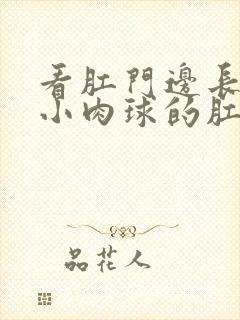 看肛門邊長
小肉球的肛
品花人